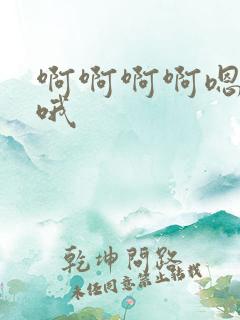 啊啊啊啊嗯
哦
乾坤問路
未经同意禁止转载